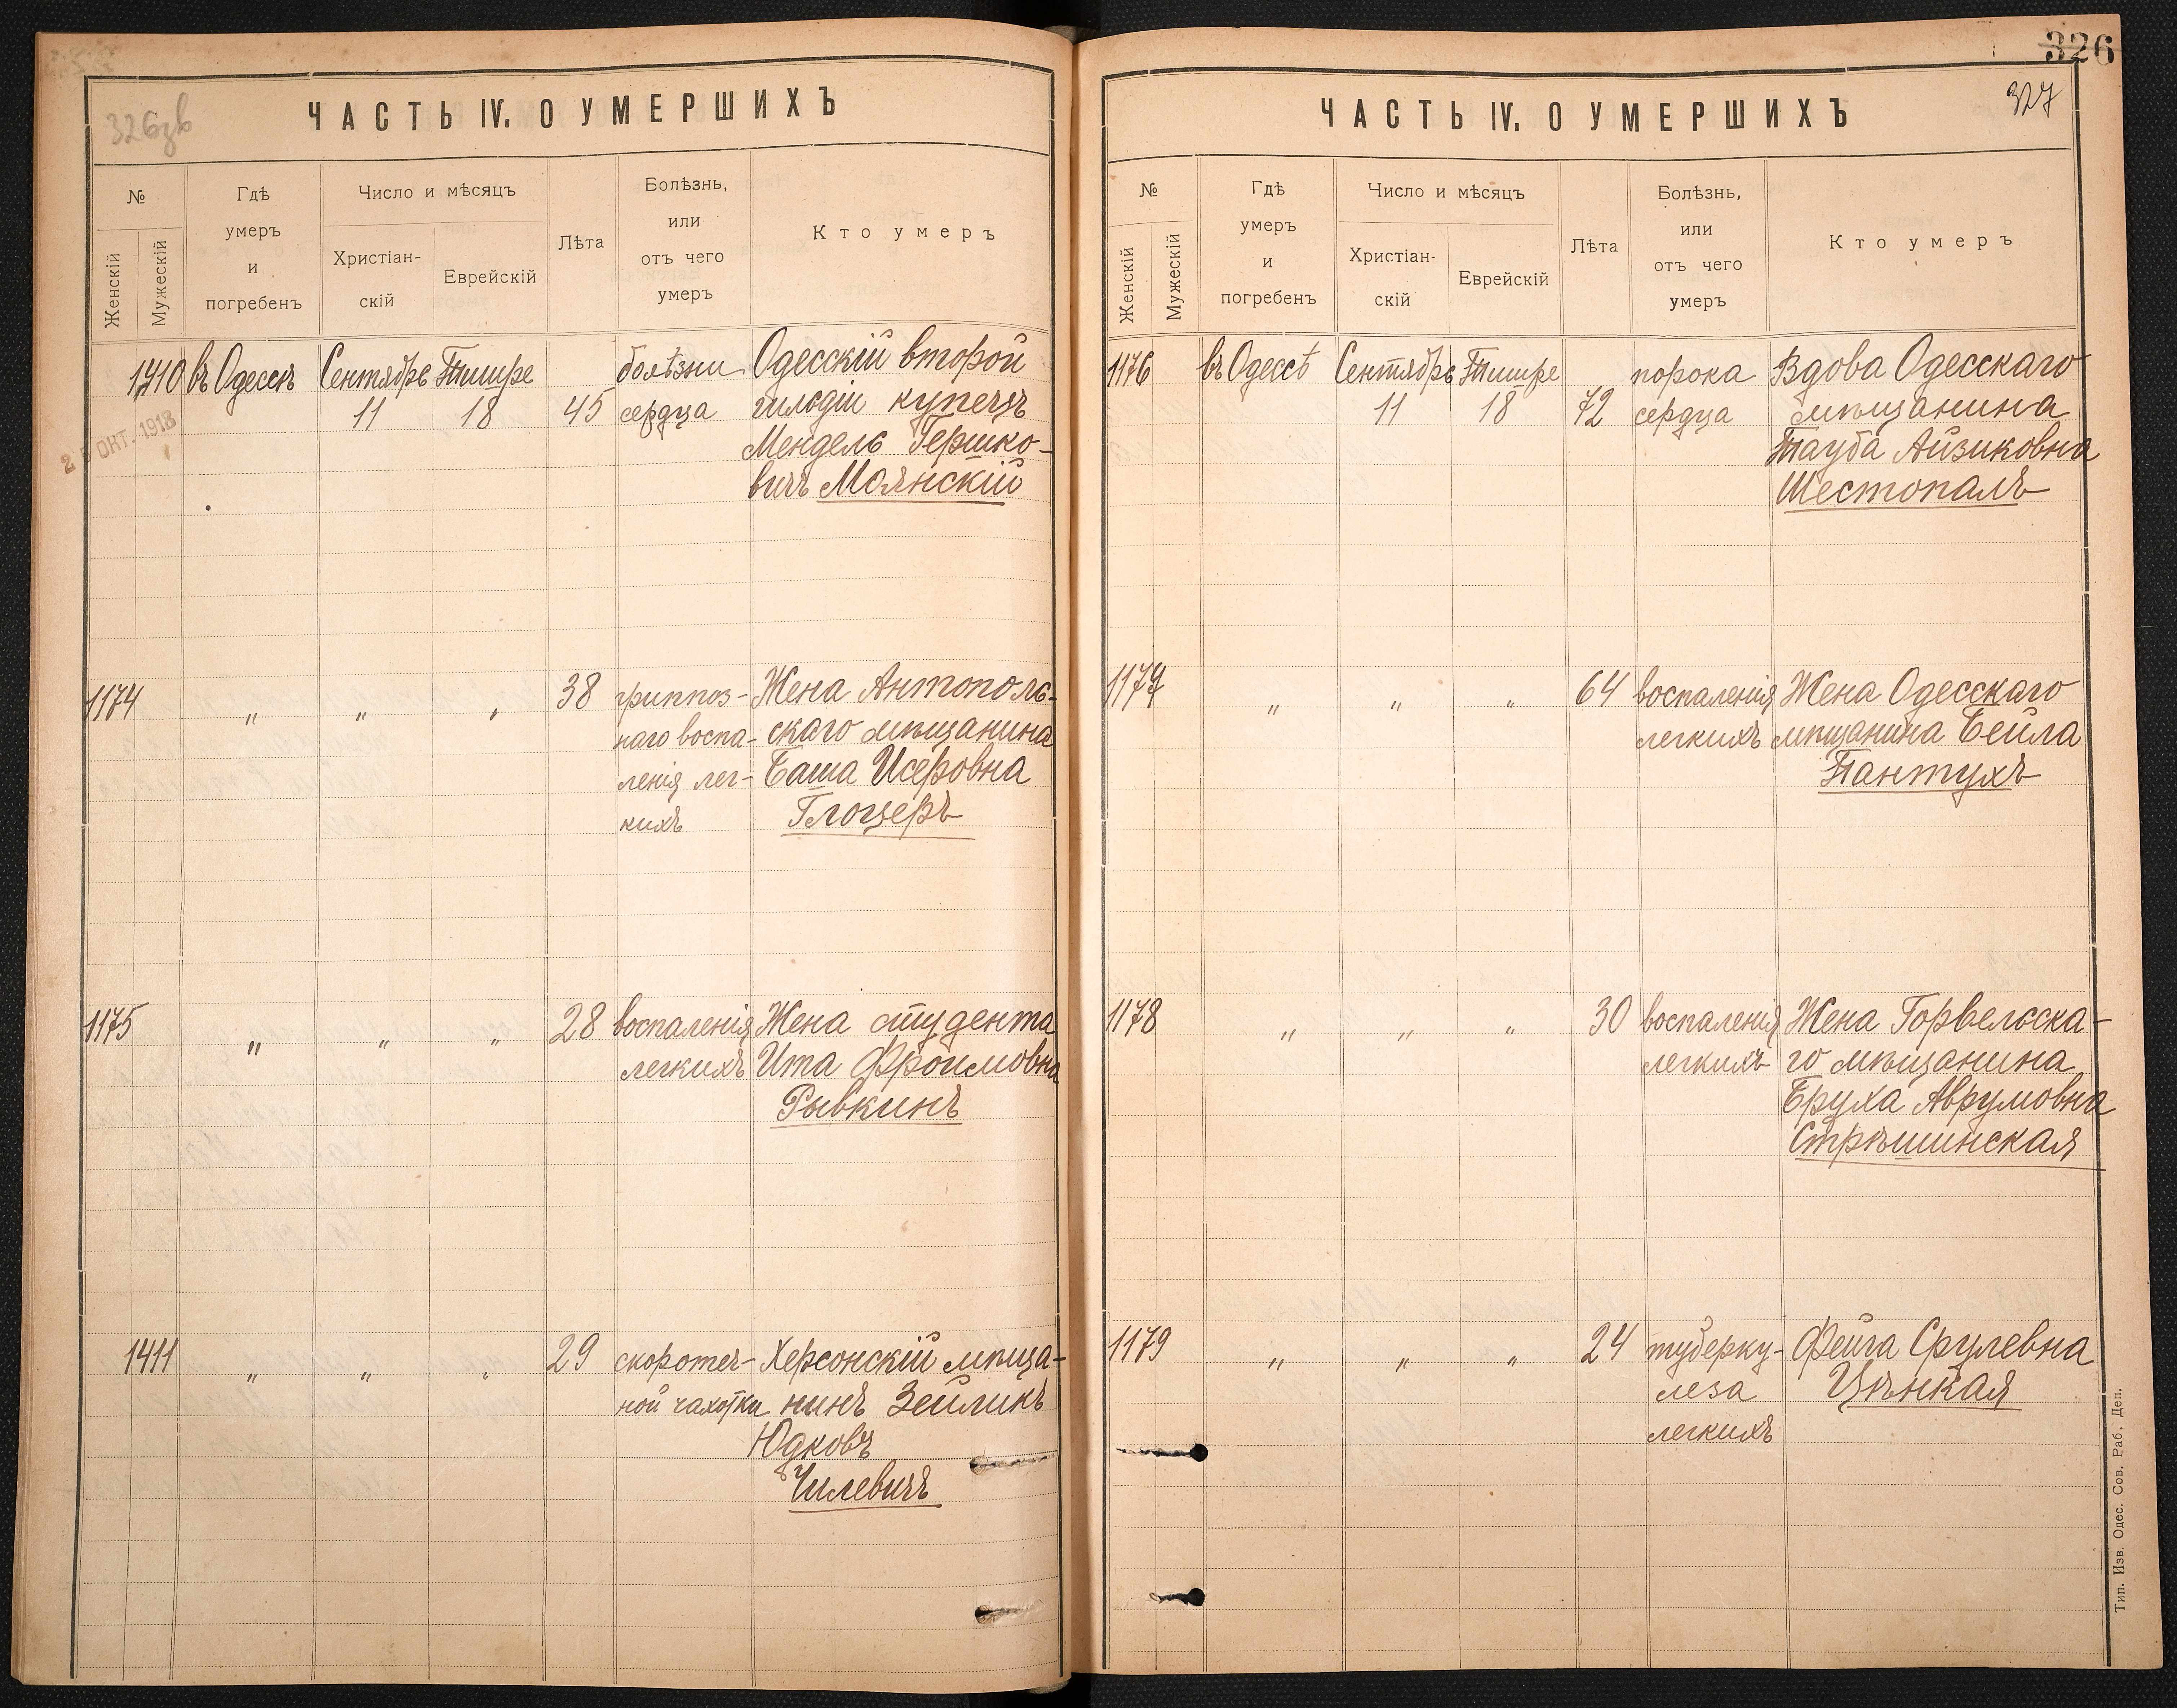 326
326зв
ЧАСТЬ IV. О УМЕРШИХЪ
№
Женскій
Мужескій
Гдѣ
умеръ
и
погребенъ
Число и мѣсяцъ
Христіан-
скій
Еврейскій
Лѣта
Болѣзнь,
или
отъ чего
умеръ
Кто умеръ
1410 въ Одессѣ Сентябрь Тишре болѣзни Одесскій второй
11 18 45 сердца гильдіи купецъ
Мендель Гершко-
вичъ Моянскій
ОКТ. 1918
1174 " " " 38 гриппоз- Жена Антополь-
наго воспа- скаго мѣщанина
ленія лег- Баша Исеровна
кихъ Глоцеръ
1175 " " " 28 воспаленія Жена студента
легкихъ Ита Фроимовна
Рывкинъ
1411 " " " 29 скоротеч- Херсонскій мѣща-
ной чахотки нинъ Зейликъ
Юдковъ
Чилевичъ
327
ЧАСТЬ IV. О УМЕРШИХЪ
№
Женскій
Мужескій
Гдѣ
умеръ
и
погребенъ
Число и мѣсяцъ
Христіан-
скій
Еврейскій
Лѣта
Болѣзнь,
или
отъ чего
умеръ
Кто умеръ
1176 въ Одессѣ Сентябрь Тишре порока Вдова Одесскаго
11 18 72 сердца мѣщанина
Тауба Айзиковна
Шестопалъ
1177 " " " 64 воспаленія Жена Одесскаго
легкихъ мѣщанина Бейла
Пантухъ
1178 " " " 30 воспаленія Жена Горвельска-
легкихъ го мѣщанина
Бруха Аврумовна
Стрѣшинская
1179 " " " 24 туберку- Фейга Срулевна
леза Цѣнкая
легкихъ
Тип. Изв. Одес. Сов. Раб. Деп.